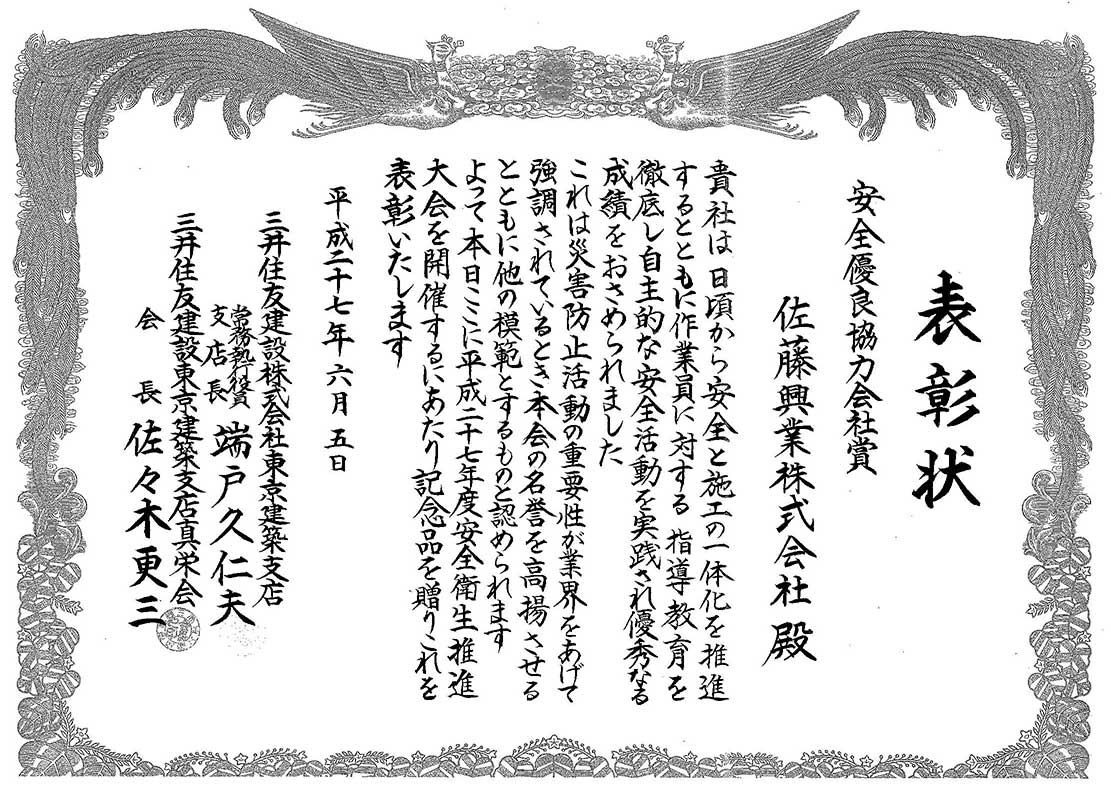 表彰状
安全優良協力会社賞
佐藤興業株式会社殿
貴社は日頃から安全と施工の一体化を推進
するとともに作業員に対する指導教育を
徹底し自主的な安全活動を実践され優秀なる
成績をおさめられました
これは災害防止活動の重要性が業界をあげて
強調されているとき本会の名誉を高揚させる
とともに他の模範とするものと認められます
よって本日ここに平成二十七年度安全衛生推進
大会を開催するにあたり記念品を贈りこれを
表彰いたします
平成二十七年六月五日
三井住友建設株式会社東京建築支店
常務執行役員
支店長 端戸久仁夫
三井住友建設東京建築支店真栄会
会長 佐々木更三